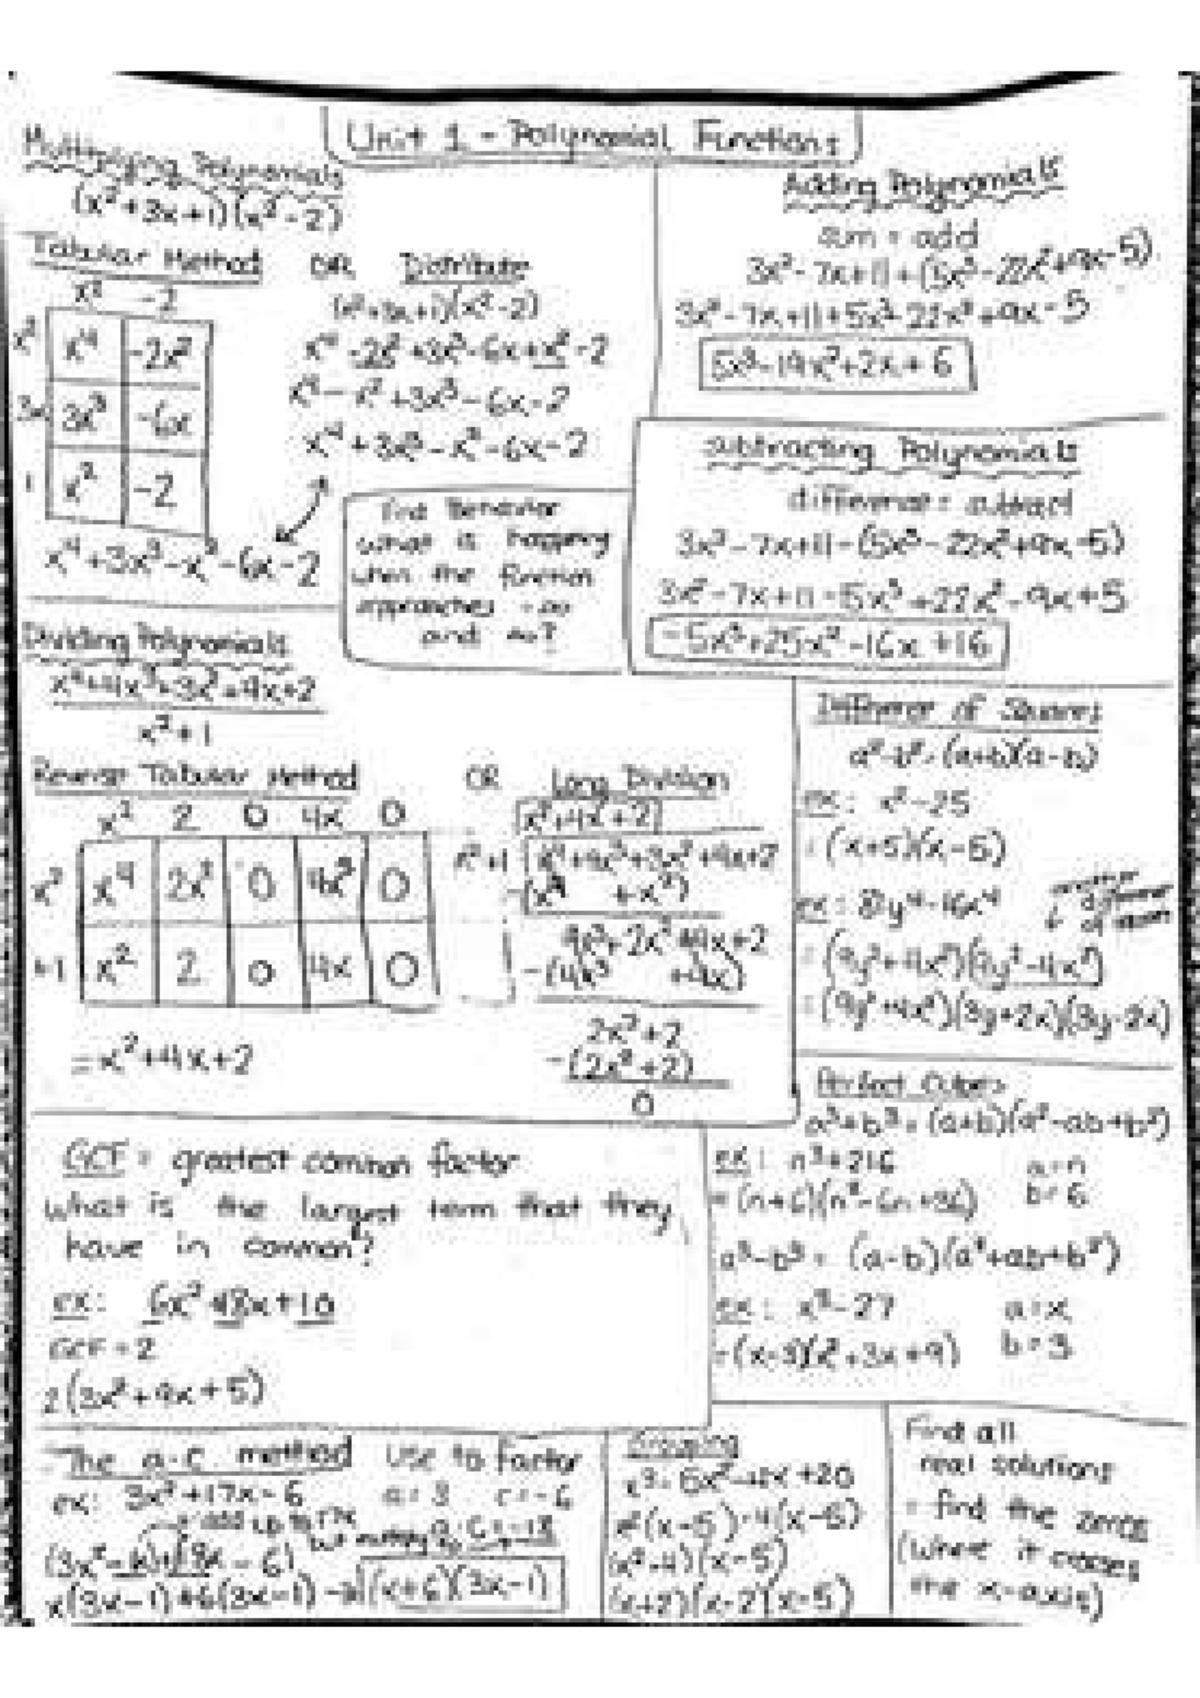 Unit 1 - Polynomial Functions
Multiplying Polynomials
(x²+3x+1)(x²-2)
Tabular Method OR Distribute
x² -2
x² x⁴ -2x²
3x 3x³ -6x
1 x² -2
x⁴+3x³-x²-6x-2
(x²+3x+1)(x²-2)
x⁴-2x²+3x³-6x+x²-2
x⁴-x²+3x³-6x-2
x⁴+3x³-x²-6x-2
End Behavior
what is happing
when the function
approaches -∞
and ∞?
Adding Polynomials
sum = add
3x²-7x+11+(5x³-22x²+9x-5)
3x²-7x+11+5x³-22x²+9x-5
5x³-19x²+2x+6
Subtracting Polynomials
difference = subtract
3x²-7x+11-(5x³-22x²+9x-5)
3x²-7x+11-5x³+22x²-9x+5
-5x³+25x²-16x+16
Dividing Polynomials
x⁴+4x³+3x²+4x+2
x²+1
Reverse Tabular Method OR Long Division
x² 2 0 4x 0
x² x⁴ 2x² 0 4x³ 0
+1 x² 2 0 4x 0
=x²+4x+2
x²+4x+2
x²+1 x⁴+4x³+3x²+4x+2
-(x⁴ +x²)
4x³+2x²+4x+2
-(4x³ +4x)
2x²+2
-(2x²+2)
0
Difference of Squares
a²-b²=(a+b)(a-b)
ex: x²-25
=(x+5)(x-5)
ex: 81y⁴-16x⁴
another
=(9y²+4x²)(9y²-4x²)
=(9y²+4x²)(3y+2x)(3y-2x)
Perfect Cubes
a³+b³=(a+b)(a²-ab+b²)
ex: n³+216 a=n
=(n+6)(n²-6n+36) b=6
a³-b³=(a-b)(a²+ab+b²)
ex: x³-27 a=x
=(x-3)(x²+3x+9) b=3
GCF = greatest common factor
what is the largest term that they
have in common?
ex: 6x²+18x+10
GCF=2
2(3x²+9x+5)
The a-c method use to factor
ex: 3x²+17x-6 a=3 c=-6
add up to 17x
but multiply to a·c=-18
(3x²-x)+(18x-6)
x(3x-1)+6(3x-1) (x+6)(3x-1)
Grouping
x³-5x²-4x+20
x²(x-5)-4(x-5)
(x²-4)(x-5)
(x+2)(x-2)(x-5)
Find all
real solutions
= find the zeros
(where it crosses
the x-axis)